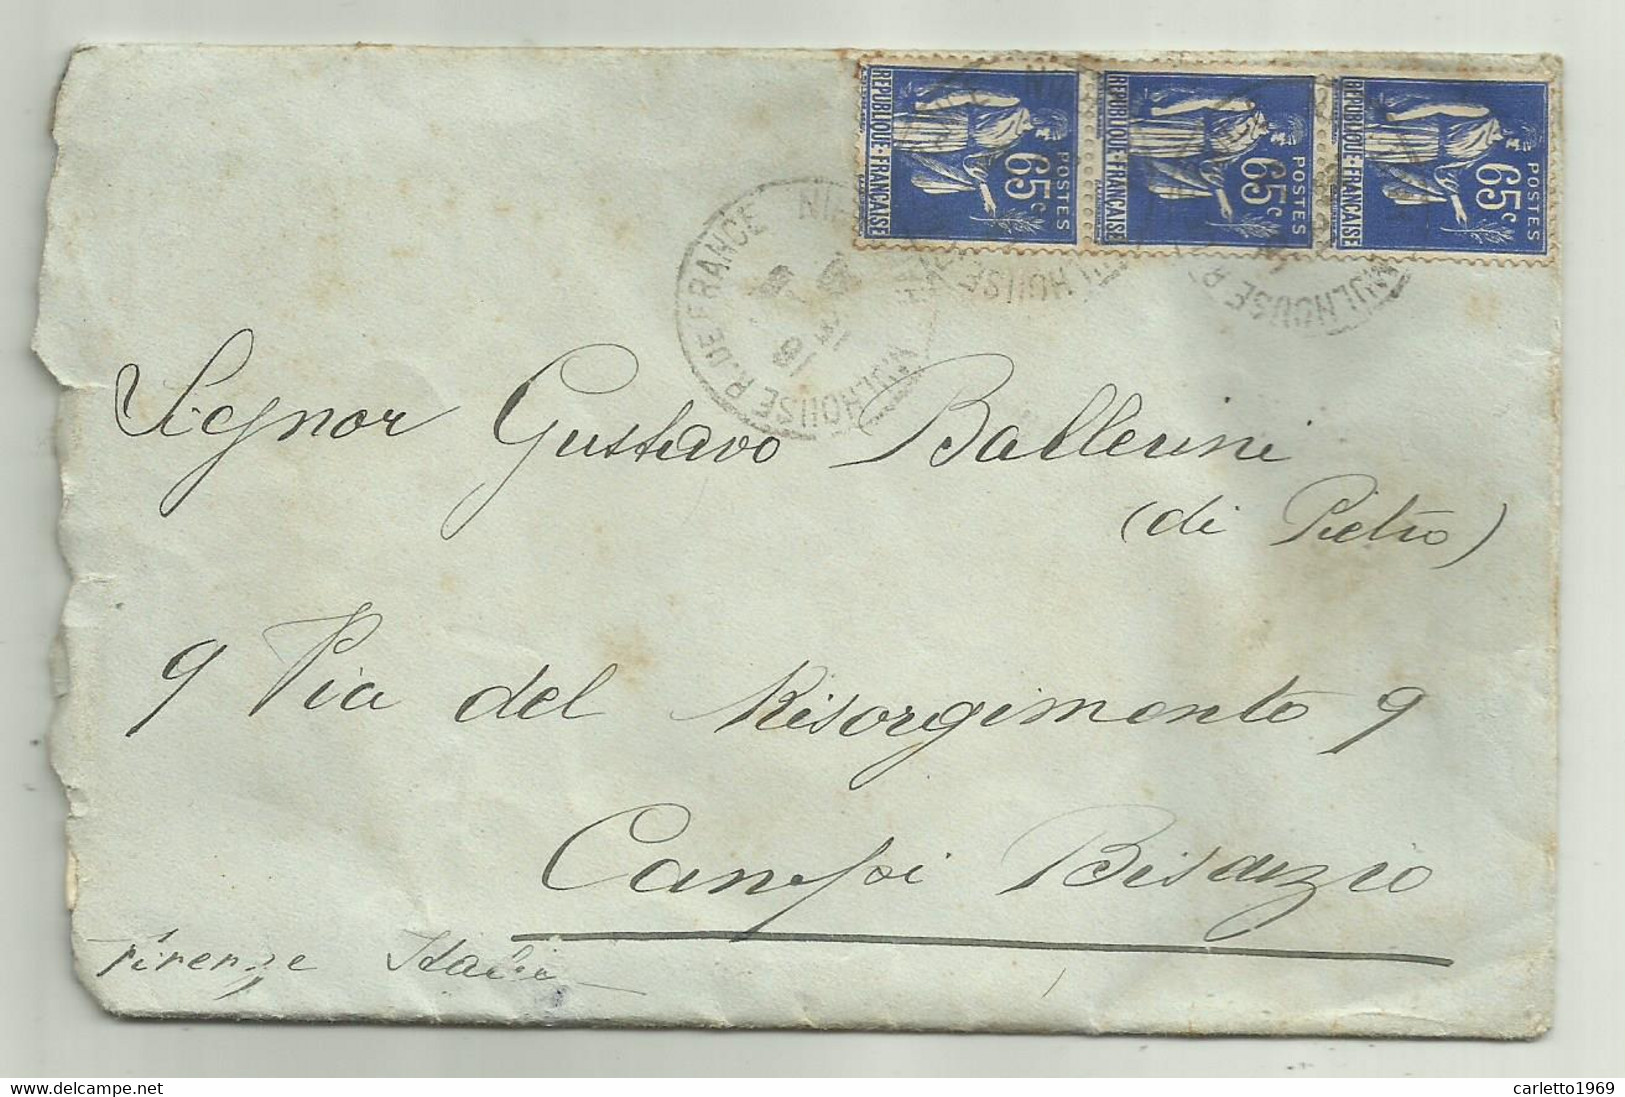 REPUBLIQUE · FRANÇAISE
65c
POSTES
REPUBLIQUE · FRANÇAISE
65c
POSTES
REPUBLIQUE · FRANÇAISE
65c
POSTES
MULHOUSE R. DE FRANCE
MULHOUSE R.
Signor Gustavo Ballerini
(di Pietro)
9 Via del Risorgimento 9
Campi Bisanzio
Firenze Italia
delcampe.net
carletto1969